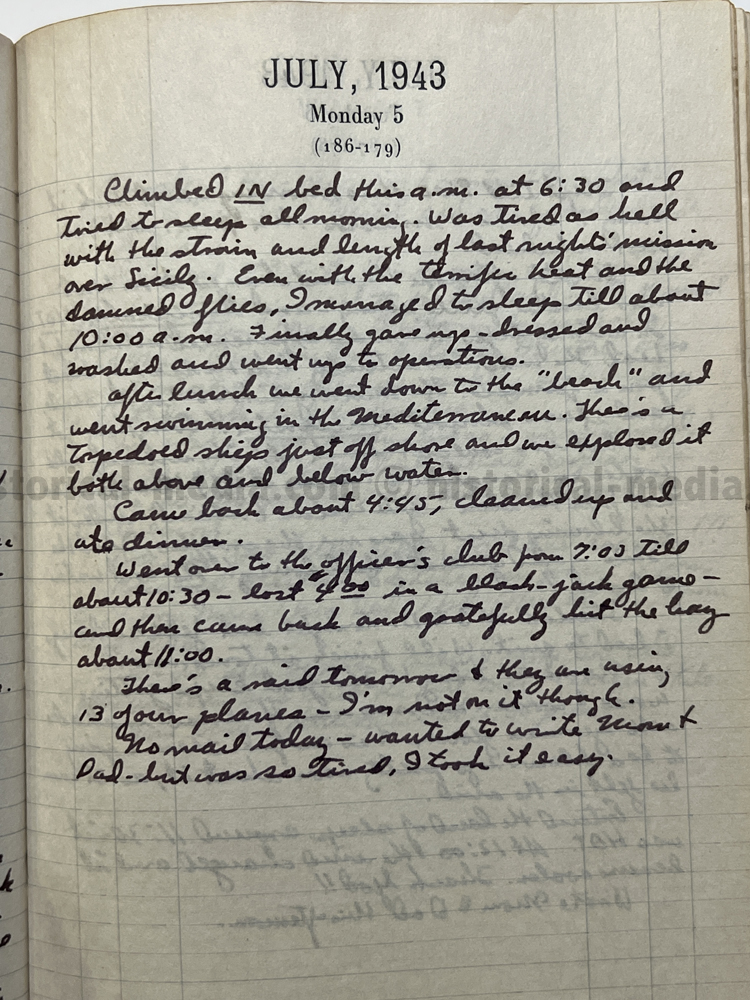 JULY, 1943
Monday 5
(186-179)
Climbed IN bed this a.m. at 6:30 and
tried to sleep all morning. Was tired as hell
with the strain and length of last nights' mission
over Sicily. Even with the terrific heat and the
damned flies, I managed to sleep till about
10:00 a.m. Finally gave up - dressed and
washed and went up to operations.
After lunch we went down to the "beach" and
went swimming in the Mediterranean. There's a
torpedoed ship just off shore and we explored it
both above and below water.
Came back about 4:45, cleaned up and
ate dinner.
Went over to the officer's club from 7:00 till
about 10:30 - lost $4.00 in a black-jack game -
and then came back and gratefully hit the hay
about 11:00.
There's a raid tomorrow & they are using
13 of our planes - I'm not on it though.
No mail today - wanted to write Mom &
Dad - but was so tired, I took it easy.